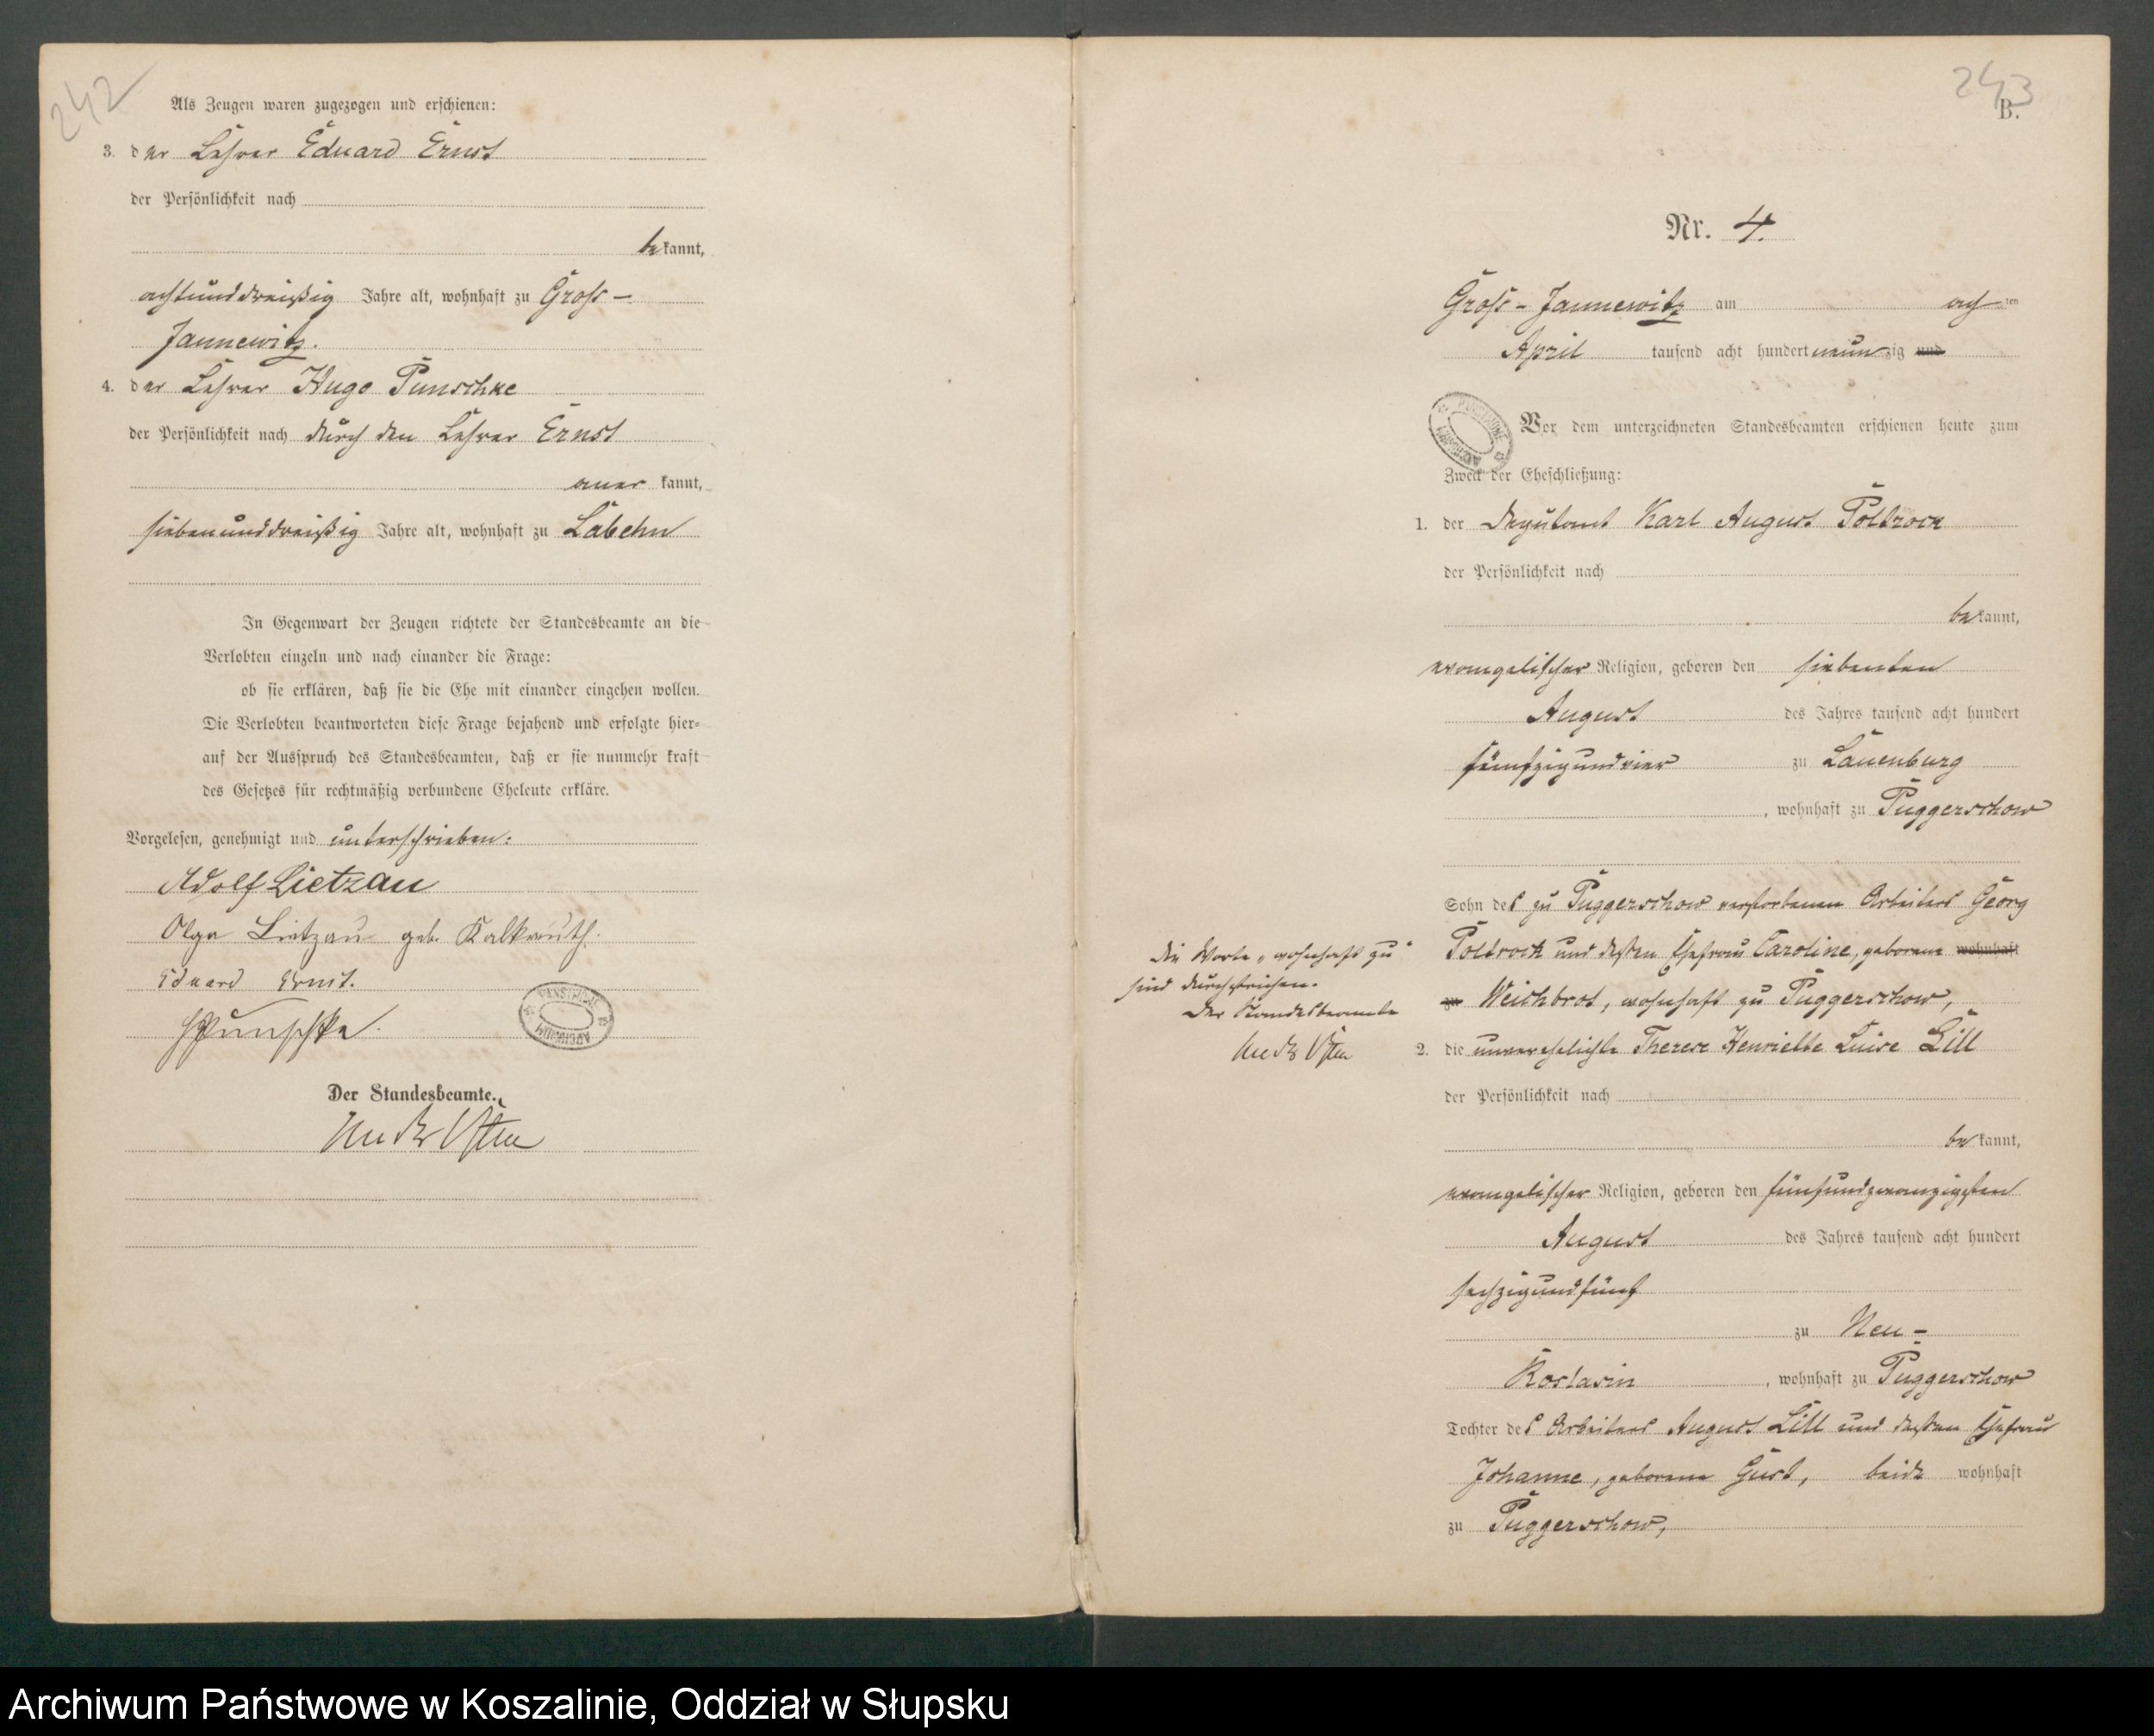 242
Als Zeugen waren zugezogen und erschienen:
3. der Lehrer Eduard Ernst
der Persönlichkeit nach
bekannt,
achtunddreißig Jahre alt, wohnhaft zu Gross-
Jannewitz.
4. der Lehrer Hugo Punschke
der Persönlichkeit nach durch den Lehrer Ernst
aner kannt,
siebenunddreißig Jahre alt, wohnhaft zu Labehn
In Gegenwart der Zeugen richtete der Standesbeamte an die
Verlobten einzeln und nach einander die Frage:
ob sie erklären, daß sie die Ehe mit einander eingehen wollen.
Die Verlobten beantworteten diese Frage bejahend und erfolgte hier-
auf der Ausspruch des Standesbeamten, daß er sie nunmehr kraft
des Gesetzes für rechtmäßig verbundene Eheleute erkläre.
Vorgelesen, genehmigt und unterschrieben:
Adolf Lietzau
Olga Lietzau geb. Kalkreuth.
Eduard Ernst.
HPunschke.
Der Standesbeamte.
243
B.
Nr. 4.
Gross-Jannewitz am achten
April tausend acht hundert neunzig und
Vor dem unterzeichneten Standesbeamten erschienen heute zum
Zweck der Eheschließung:
1. der Deputant Karl August Poltrock
der Persönlichkeit nach
bekannt,
evangelischer Religion, geboren den siebenten
August des Jahres tausend acht hundert
fünfzigundvier zu Lauenburg
, wohnhaft zu Puggerschow
Sohn des zu Puggerschow verstorbenen Arbeiters Georg
Poltrock und dessen Ehefrau Caroline, geborene wohnhaft
zu Weichbrot, wohnhaft zu Puggerschow,
Die Worte „wohnhaft zu“
sind durchstrichen.
Der Standesbeamte
2. die unverehelichte Therese Henriette Luise Lill
der Persönlichkeit nach
bekannt,
evangelischer Religion, geboren den fünfundzwanzigsten
August des Jahres tausend acht hundert
sechzigundfünf
zu Neu-
Roslasin, wohnhaft zu Puggerschow
Tochter des Arbeiters August Lill und dessen Ehefrau
Johanne, geborene Gust, beide wohnhaft
zu Puggerschow,
Archiwum Państwowe w Koszalinie, Oddział w Słupsku